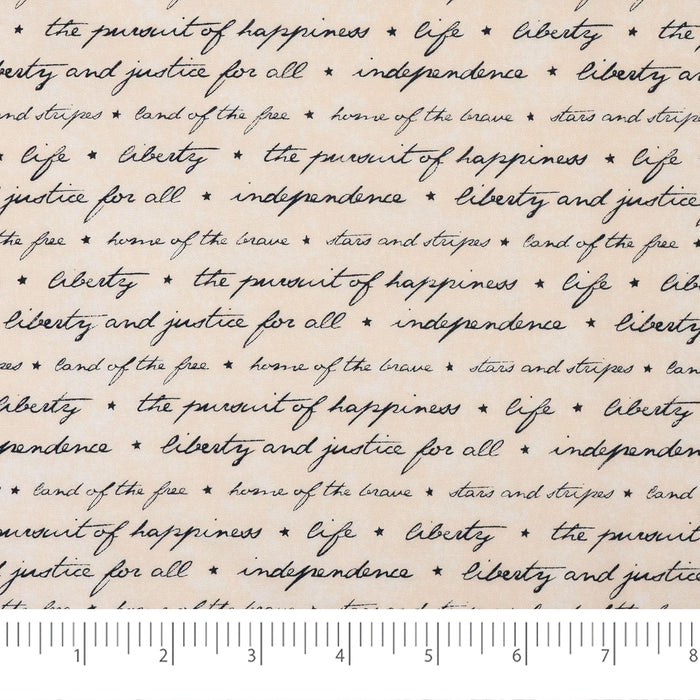 ★ the pursuit of happiness ★ life ★ liberty ★ the
and justice for all ★ independence ★ liberty
stripes ★ land of the free ★ home of the brave ★ stars and
★ life ★ liberty ★ the pursuit of happiness ★ life
justice for all ★ independence ★ liberty and justice
the free ★ home of the brave ★ stars and stripes ★ land of the free ★
★ liberty ★ the pursuit of happiness ★ life ★
liberty and justice for all ★ independence ★ liberty
★ land of the free ★ home of the brave ★ stars and stripes ★
liberty ★ the pursuit of happiness ★ life ★ liberty
★ liberty and justice for all ★
★ land of the free ★ home of the brave ★ stars and stripes ★ land
pursuit of happiness ★ life ★ liberty ★ the pursuit
justice for all ★ independence ★ liberty and justice
1 2 3 4 5 6 7 8